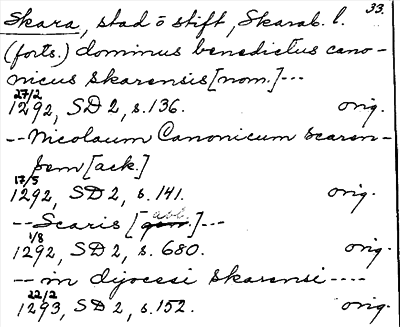 33.
Skara, stad o stift, Skarab. l.
(forts.) dominus benedictus cano-
nicus skarensis [nom.] ---
27/2
1292, SD 2, s. 136. orig.
-- Nicolaum Canonicum scaren-
sem [ack.]
17/5
1292, SD 2, s. 141. orig.
-- Scaris [gen. abl.] ---
1/8
1292, SD 2, s. 680. orig.
-- in dyocesi skarensi ----
22/2
1293, SD 2, s. 152. orig.